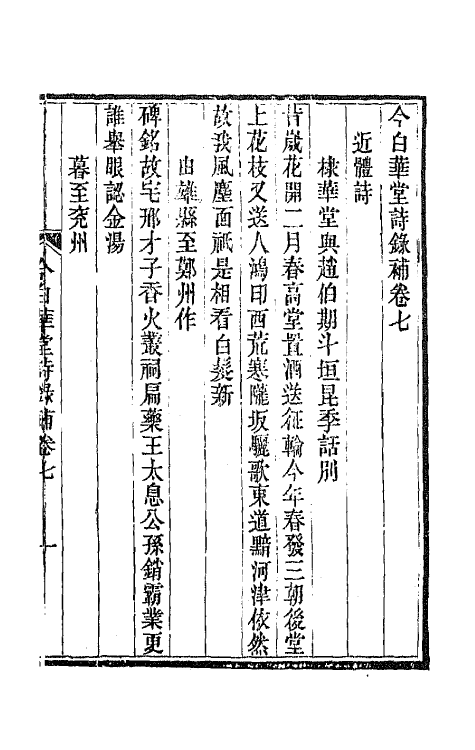 今白華堂詩錄補卷七
近體詩
棣華堂與趙伯期斗垣昆季話別
昔歲花開二月春高堂置酒送征輪今年春發三朝後堂
上花枝又送人鴻印西荒寒隴坂驪歌東道黯河津依然
故我風塵面祇是相看白髮新
由雄縣至鄭州作
碑銘故宅邢才子香火叢祠扁藥王太息公孫銷霸業更
誰舉眼認金湯
暮至兖州
今白華堂詩錄補卷七
一